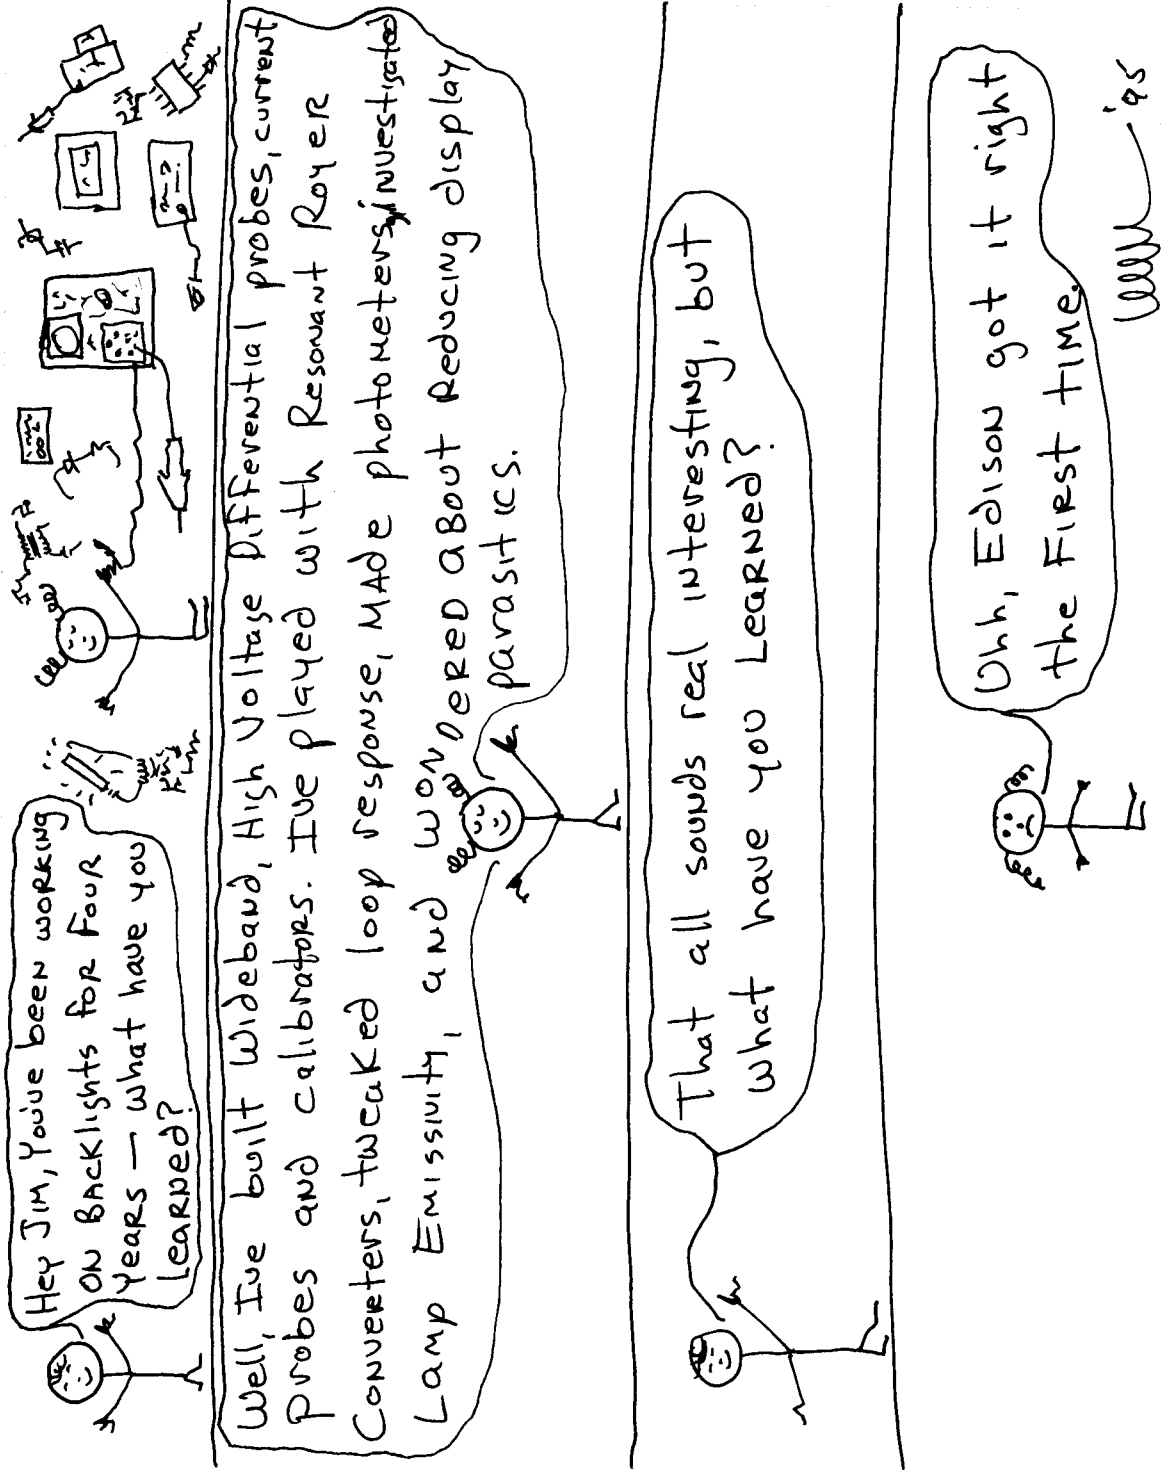 Hey Jim, You've been working
on Backlights for four
years — what have you
learned?
Well, I've built wideband, High Voltage Differential probes, current
probes and calibrators. I've played with Resonant Royer
Converters, tweaked loop response, made photometers, investigated
Lamp Emissivity, and wondered about reducing display
parasitics.
That all sounds real interesting, but
what have you learned?
Uhh, Edison got it right
the first time.
'95